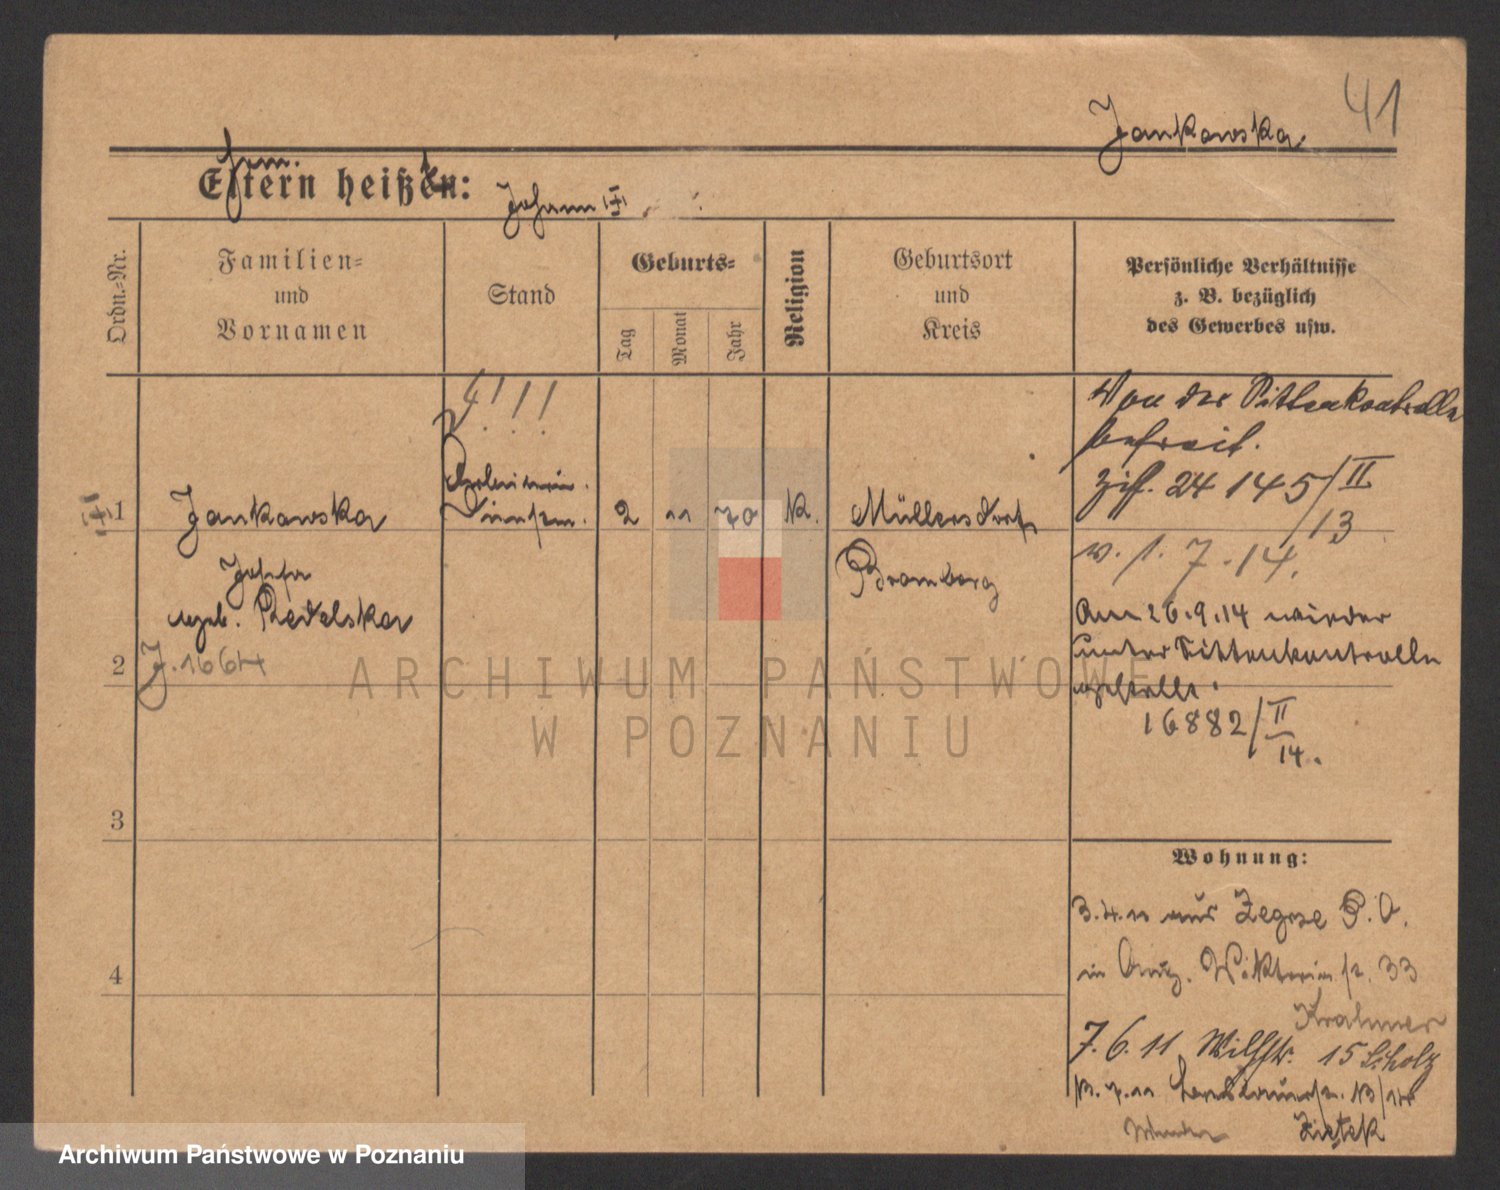 41
Jankowska
Eltern heißen:
Johann
Ordn.-Nr.
Familien-
und
Vornamen
Stand
Geburts-
Tag
Monat
Jahr
Religion
Geburtsort
und
Kreis
Persönliche Verhältnisse
z. B. bezüglich
des Gewerbes usw.
1
Jankowska
Josefa
geb. Redelska
J. 1664
2 11 70 K.
Müllersdorf
Bromberg
Von der Sittenkontrolle
befreit.
Ziff. 24 145/II
13
7.14.
Am 26.9.14 wieder
unter Sittenkontrolle
gestellt.
16882/II
14.
2
3
4
Wohnung:
3.4.11 aus Zegrze P. O.
in Aug. Viktoriastr. 33
Krahmer
7.6.11 Wilhstr. 15 Scholz
Zietek
ARCHIWUM PAŃSTWOWE
W POZNANIU
Archiwum Państwowe w Poznaniu